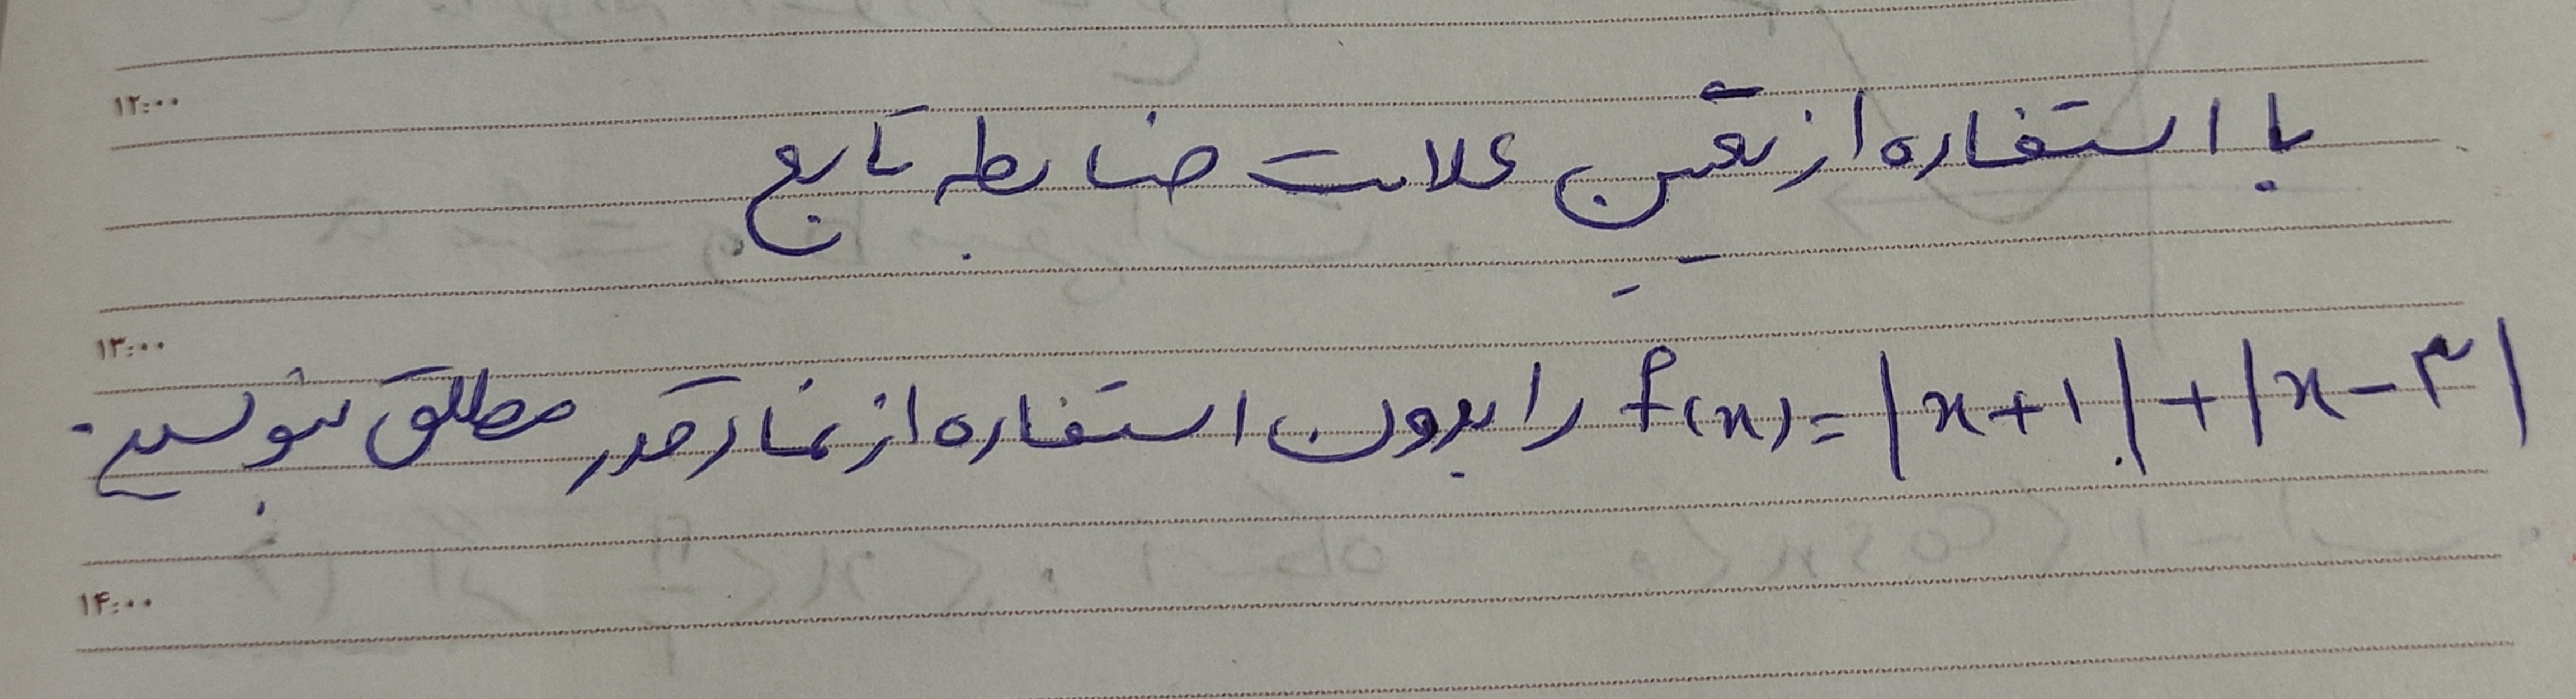 ۱۲:۰۰
با استفاده از تعیین علامت ضابطه تابع
۱۳:۰۰
f(x)=|x+۱|+|x-۳| را بدون استفاده از نماد قدر مطلق بنویسید.
۱۴:۰۰